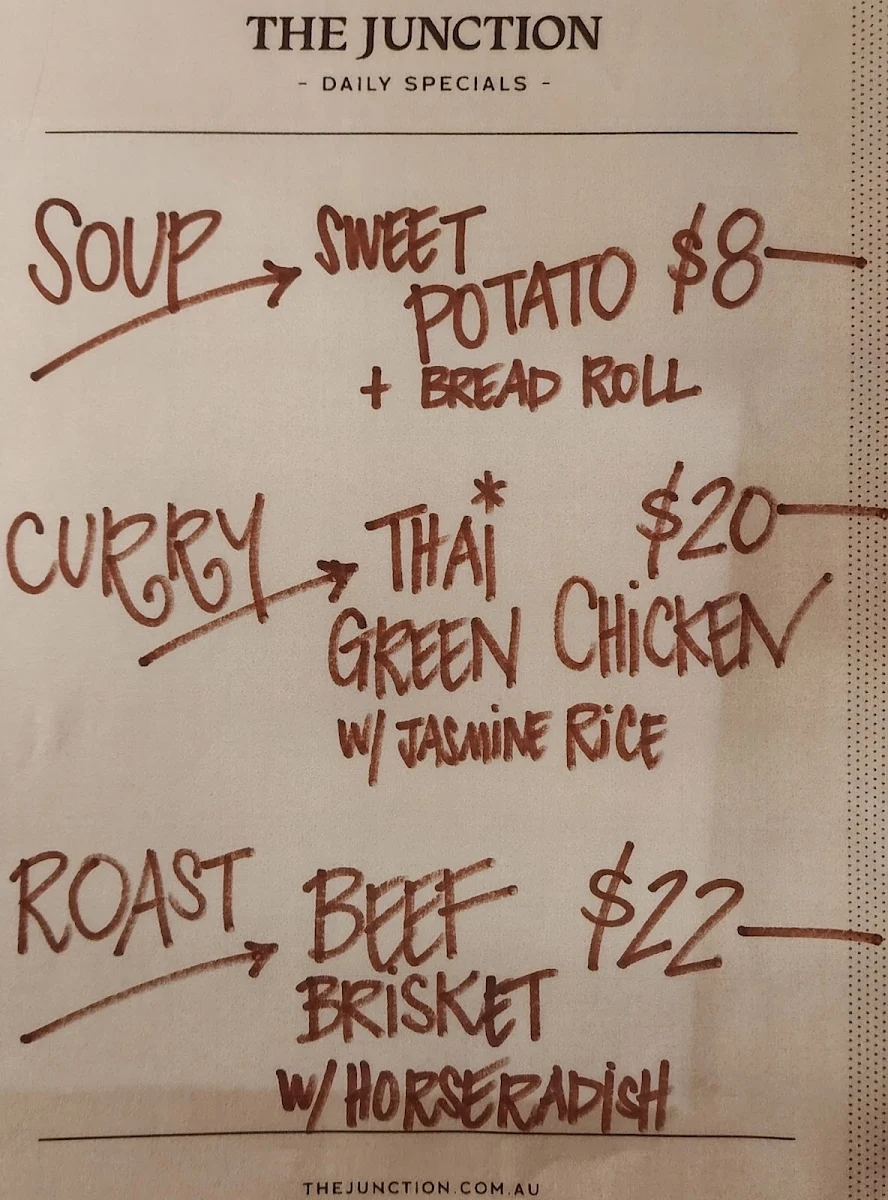 THE JUNCTION
- DAILY SPECIALS -
SOUP → SWEET
POTATO $8—
+ BREAD ROLL
CURRY → THAI* $20—
GREEN CHICKEN
W/ JASMINE RICE
ROAST → BEEF $22—
BRISKET
W/ HORSERADISH
THEJUNCTION.COM.AU